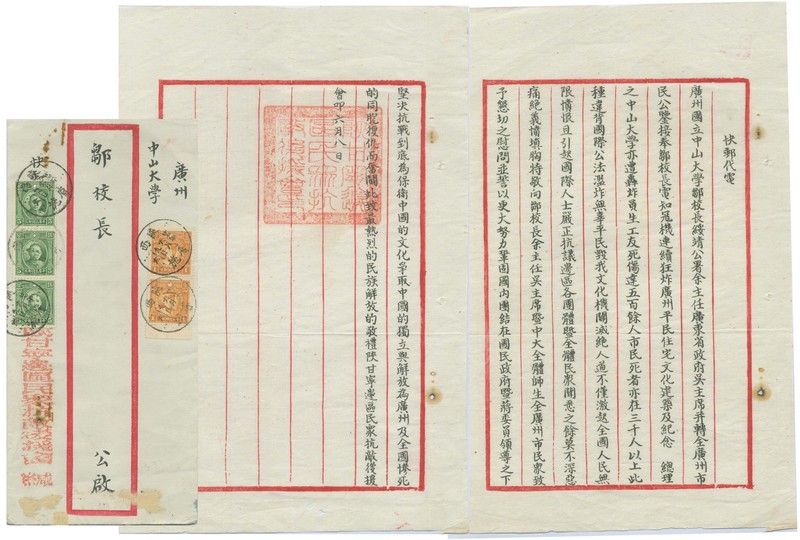 快郵代電
廣州國立中山大學鄒校長綏靖公署余主任廣東省政府吳主席并轉全廣州市
民公鑒接奉鄒校長電知寇機連續狂炸廣州平民住宅文化建築及紀念 總理
之中山大學亦遭轟炸員生工友死傷達五百餘人市民死者亦在三千人以上此
種違背國際公法濫炸無辜平民毀我文化機關滅絕人道不僅激起全國人民無
限憤恨且引起國際人士嚴正抗議邊區各團體暨全體民衆聞悉之餘莫不深惡
痛絕義憤填胸特敬向鄒校長余主任吳主席暨中大全體師生全廣州市民衆致
予懇切之慰問並誓以更大努力鞏固國內團結在國民政府暨蔣委員領導之下
堅决抗戰到底為保衛中國的文化爭取中國的獨立與解放為廣州及全國慘死
的同胞復仇而奮鬪耑致最熱烈的民族解放的敬禮陝甘寧邊區民衆抗敵後援
會叩六月八日
廣州
中山大學
鄒校長 公啟
快
陝甘寧邊區民衆抗敵後援會緘